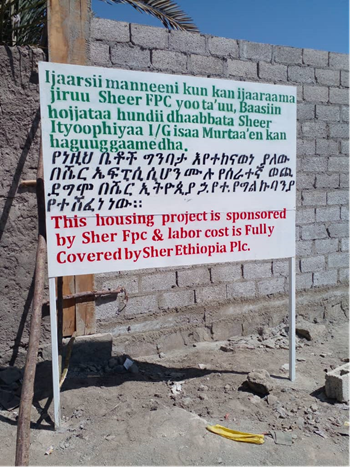 Ijaarsii manneeni kun kan ijaaraama
jiruu Sheer FPC yoo ta'uu, Baasiin
hojjataa hundii dhaabbata Sheer
Ityoophiyaa 1/G isaa Murtaa'en kan
haguuggaame dha.
የነዚህ ቤቶች ግንባታ እየተከናወነ ያለው
በሼር ኤፍፒሲ ሲሆን ሙሉ የሰራተኛ ወጪ
ደግሞ በሼር ኢትዮጲያ ኃ.የተ.የግል ኩባንያ
የተሸፈነ ነው።
This housing project is sponsored
by Sher Fpc & labor cost is Fully
Covered by Sher Ethiopia Plc.